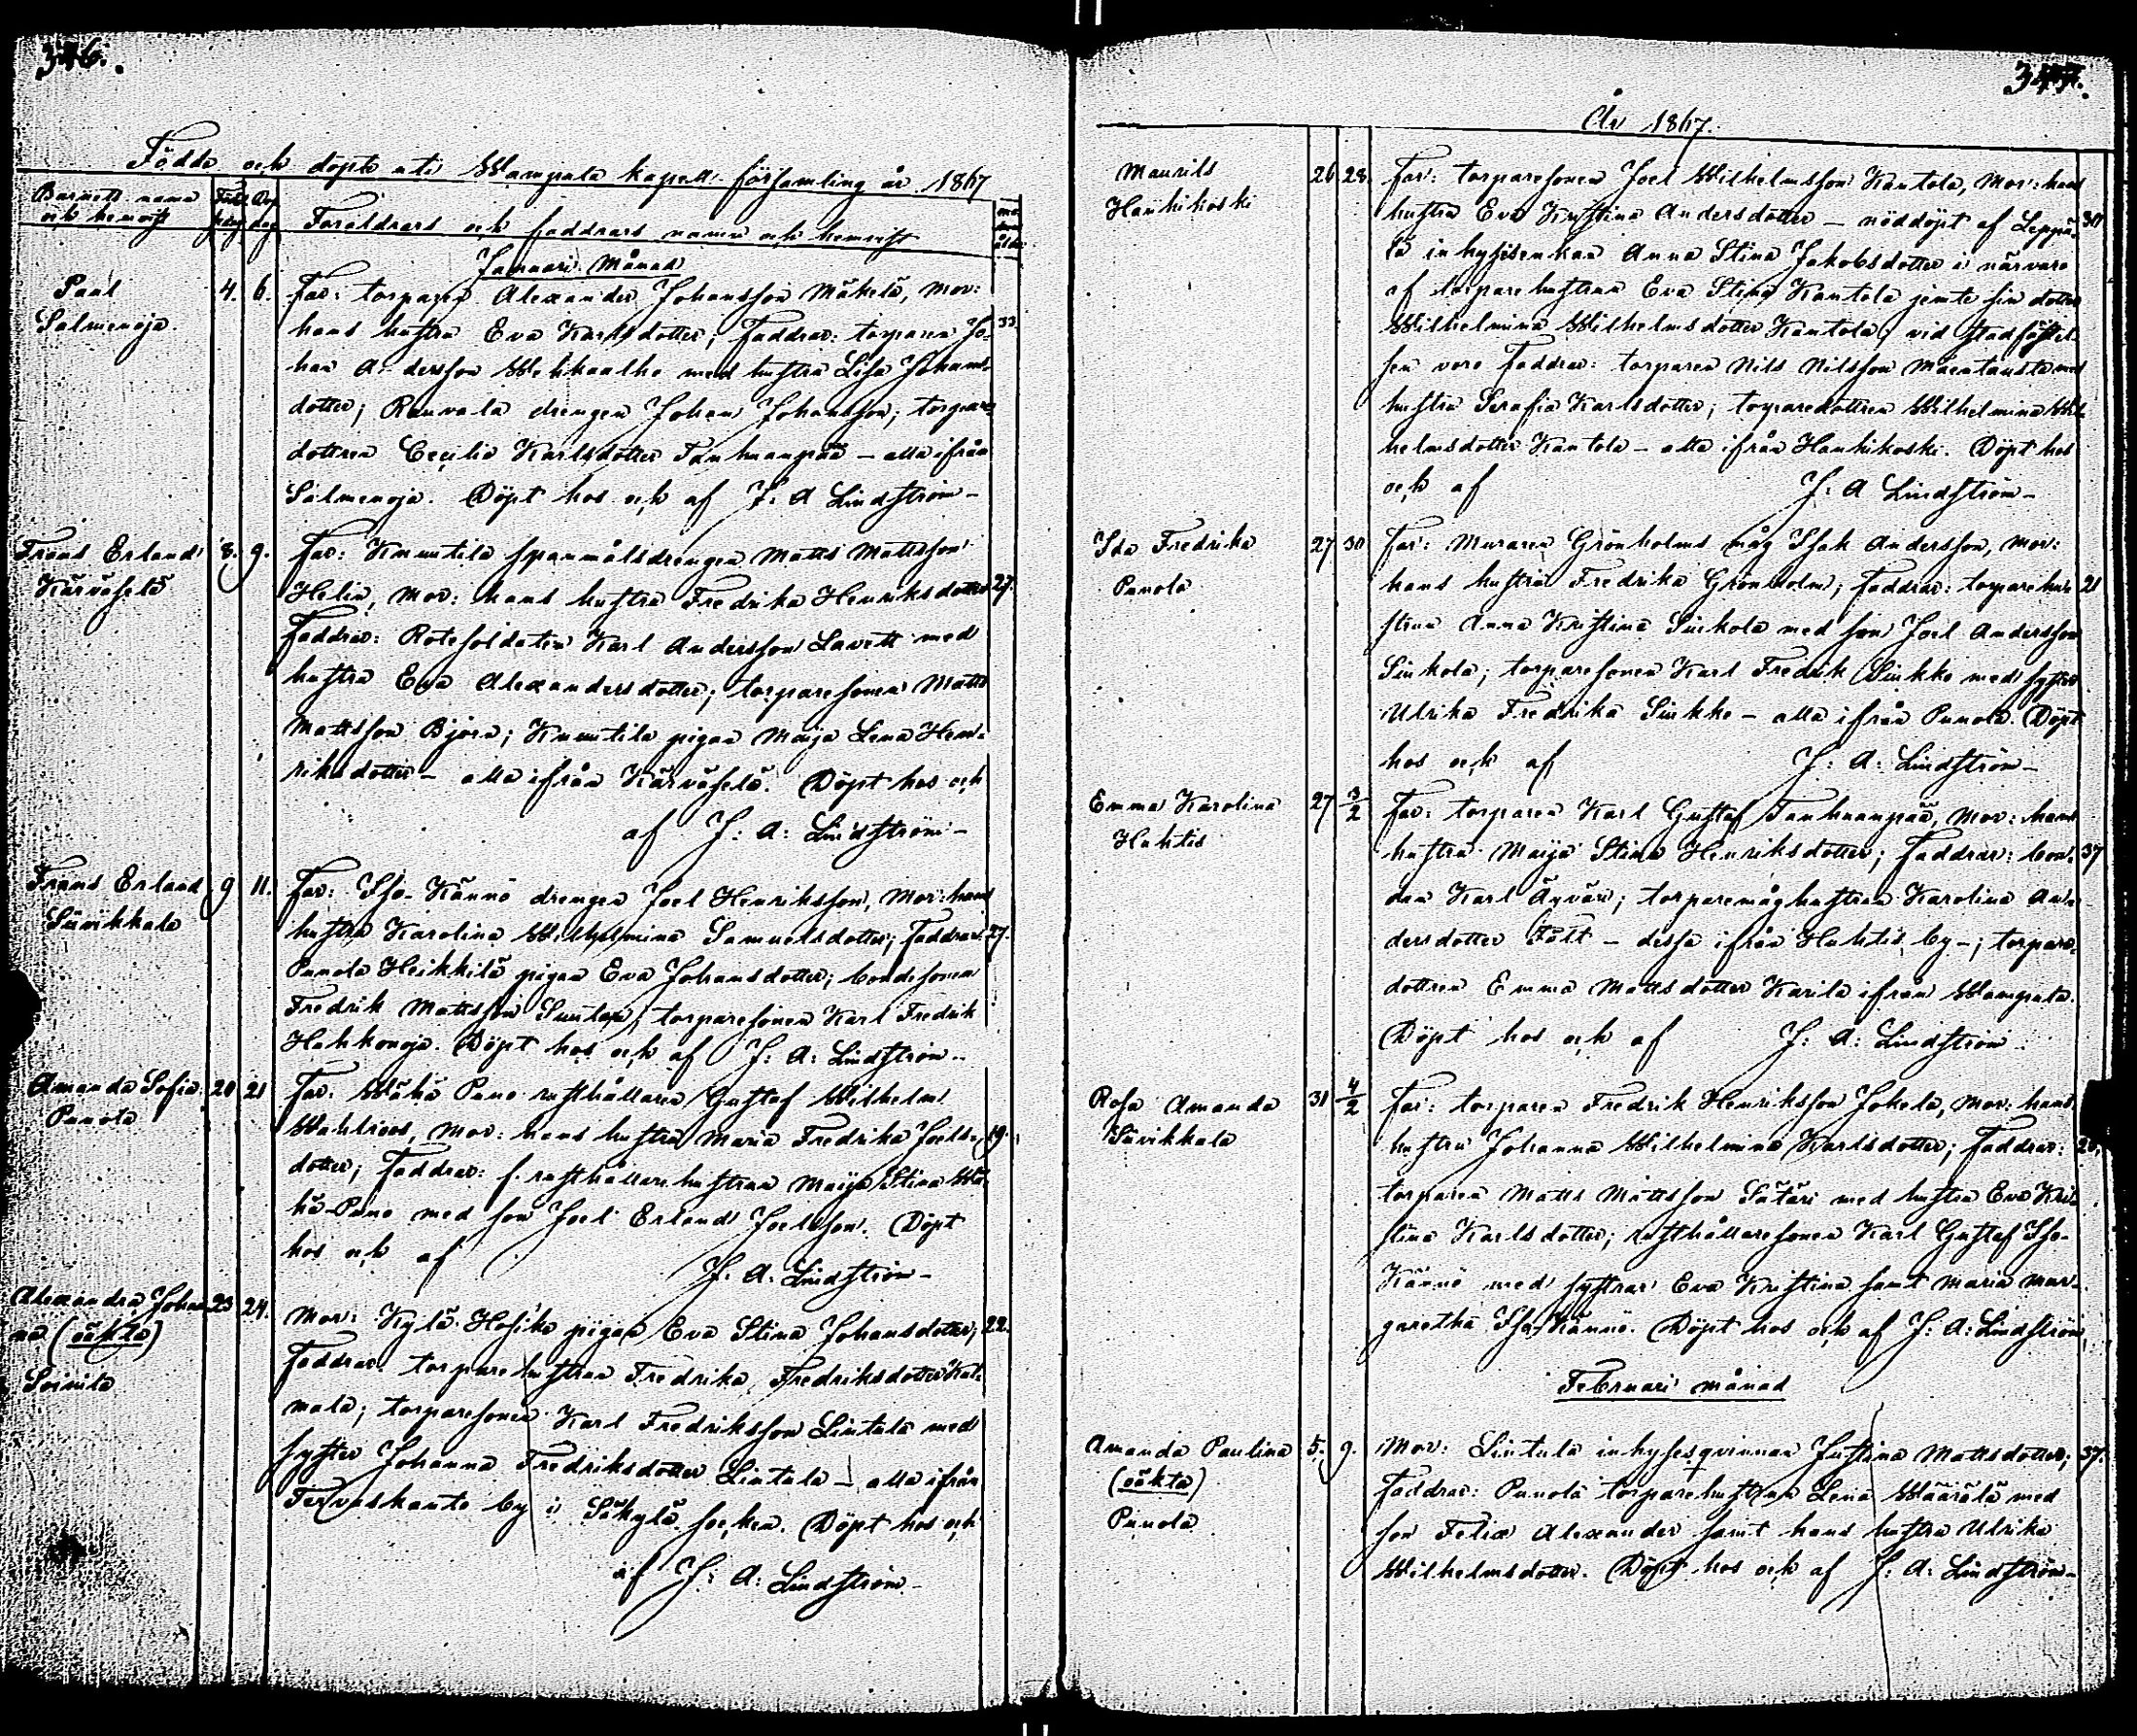 346.
Födde och döpte uti Wampula kapell församling år 1867
Barnets namn och hemvist
Föd. dag
Dop dag
Föräldrars och faddrars namn och hemvist
Januari Månad
Paul
Salmenoja.
4. 6.
Far: torparen Alexander Johansson Mäkelä, Mor:
hans hustru Eva Karlsdotter; Faddrar: torparen Jo-
33.
han Andersson Wehkaalho med hustru Lisa Johans-
dotter; Rauvala drengen Johan Johansson; torpare-
dottren Cecilia Karlsdotter Tanhuanpää – alla ifrån
Salmenoja. Döpt hos och af J: A Lindström –
Frans Erland
Kärväselä
8. 9.
Far: Knuutila spanmålsdrengen Matts Mattsson
Helin, Mor: hans hustru Fredrika Henriksdotter
27.
Faddrar: Rotesoldaten Karl Andersson Lavett med
hustru Eva Alexandersdotter; torparesonen Matts
Mattsson Björn; Knuutila pigan Maija Lena Hen-
riksdotter – alla ifrån Kärväselä. Döpt hos och
af J: A: Lindström –
Frans Erland
Sävikkala
9 11.
Far: Iso-Kännö drengen Joel Henriksson, Mor: hans
hustru Karolina Wilhelmina Samuelsdotter; Faddrar:
27.
Punola Heikkilä pigan Eva Johansdotter; bondesonen
Fredrik Mattsson Suutapi; torparesonen Karl Fredrik
Hahkonoja. Döpt hos och af J: A: Lindström –
Amanda Sofia
Punola
20 21
Far: Wähä Puno rusthållaren Gustaf Wilhelm
Wahlroos, Mor: hans hustru Maria Fredrika Joels-
19.
dotter; Faddrar: f. rusthållarehustrun Maija Stina Wä-
hä-Puno med son Joel Erland Joelsson. Döpt
hos och af J: A: Lindström –
Alexandra Johan-
na (oäkta)
Soinila
23 24.
Mor: Kylä-Hosike pigan Eva Stina Johansdotter;
22.
Faddrar: torparehustrun Fredrika Fredriksdotter Kat-
mala; torparesonen Karl Fredriksson Lintula med
syster Johanna Fredriksdotter Lintula – alla ifrån
Tervaskanto by i Säkylä socken. Döpt hos och
af J: A: Lindström –
347.
År 1867.
Maurits
Hanhikoski
26 28.
Far: torparesonen Joel Wilhelmsson Kantola, Mor: hans
hustru Eva Kristina Andersdotter – nöddöpt af Leppä-
30
lä inhysisenkan Anna Stina Jakobsdotter i närvaro
af torparehustrun Eva Stina Kantola jemte sin dotter
Wilhelmina Wilhelmsdotter Kantola; vid stadfästel-
sen voro Faddrar: torparen Nils Nilsson Mäentausta med
hustru Serafia Karlsdotter; torparedottren Wilhelmina Wil-
helmsdotter Kantola – alla ifrån Hanhikoski. Döpt hos
och af J: A Lindström –
Ida Fredrika
Punola
27 30
Far: Muraren Grönholms måg Isak Andersson, Mor:
hans hustru Fredrika Grönholm; Faddrar: torparehu-
21
strun Anna Kristina Sinkola med son Joel Andersson
Sinkola; torparesonen Karl Fredrik Sinkko med syster
Ulrika Fredrika Sinkko – alla ifrån Punola. Döpt
hos och af J: A: Lindström –
Emma Karolina
Huhtis
27 3/2
Far: torparen Karl Gustaf Tanhuanpää, Mor: hans
hustru Maija Stina Henriksdotter; Faddrar: bon-
37
den Karl Äyväri; torparemåghustrun Karolina An-
dersdotter Fält – dessa ifrån Huhtis by –; torpare-
dottren Emma Mattsdotter Karila ifrån Wampula.
Döpt hos och af J: A: Lindström –
Rosa Amanda
Sävikkala
31 4/2
Far: torparen Fredrik Henriksson Jokela, Mor: hans
hustru Johanna Wilhelmina Karlsdotter; Faddrar:
torparen Matts Mattsson Sätäri med hustru Eva Kri-
stina Karlsdotter; rusthållaresonen Karl Gustaf Iso-
Kännö med systrar Eva Kristina samt Maria Mar-
garetha Iso-Kännö. Döpt hos och af J: A: Lindström
Februari månad
Amanda Paulina
(oäkta)
Punola
5. 9.
Mor: Lintula inhysesqvinnan Justina Mattsdotter;
37.
Faddrar: Punola torparehustrun Lena Määrälä med
son Felix Alexander samt hans hustru Ulrika
Wilhelmsdotter. Döpt hos och af J: A: Lindström –